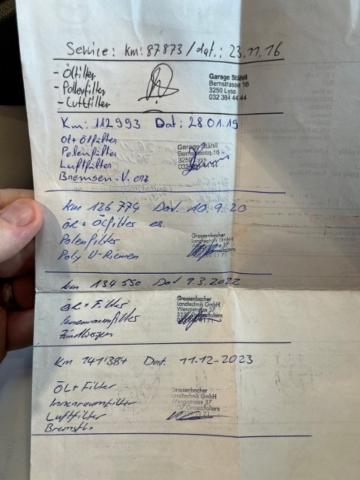 Service: km: 87873 / dat.: 23.11.16
- Ölfilter
- Pollenfilter
- Luftfilter
Garage Stähli
Bernstrasse 16
3250 Lyss
032 384 44 44
Km: 112993 Dat: 28.01.19
Öl + Ölfilter
Pollenfilter
Luftfilter
Bremsen-V.
Garage Stähli
Bernstrasse 16
3250
032 384
km 126 774 Dat. 10.9.20
Öl + Ölfilter
Pollenfilter
Poly V-Riemen
Landtechnik GmbH
km 139 550 Dat 9.3.2022
Öl + Filter
Innenraumfilter
Zündkerzen
Landtechnik GmbH
Km 141'384 Dat. 11.12-2023
ÖL + Filter
Innenraumfilter
Luftfilter
Landtechnik GmbH